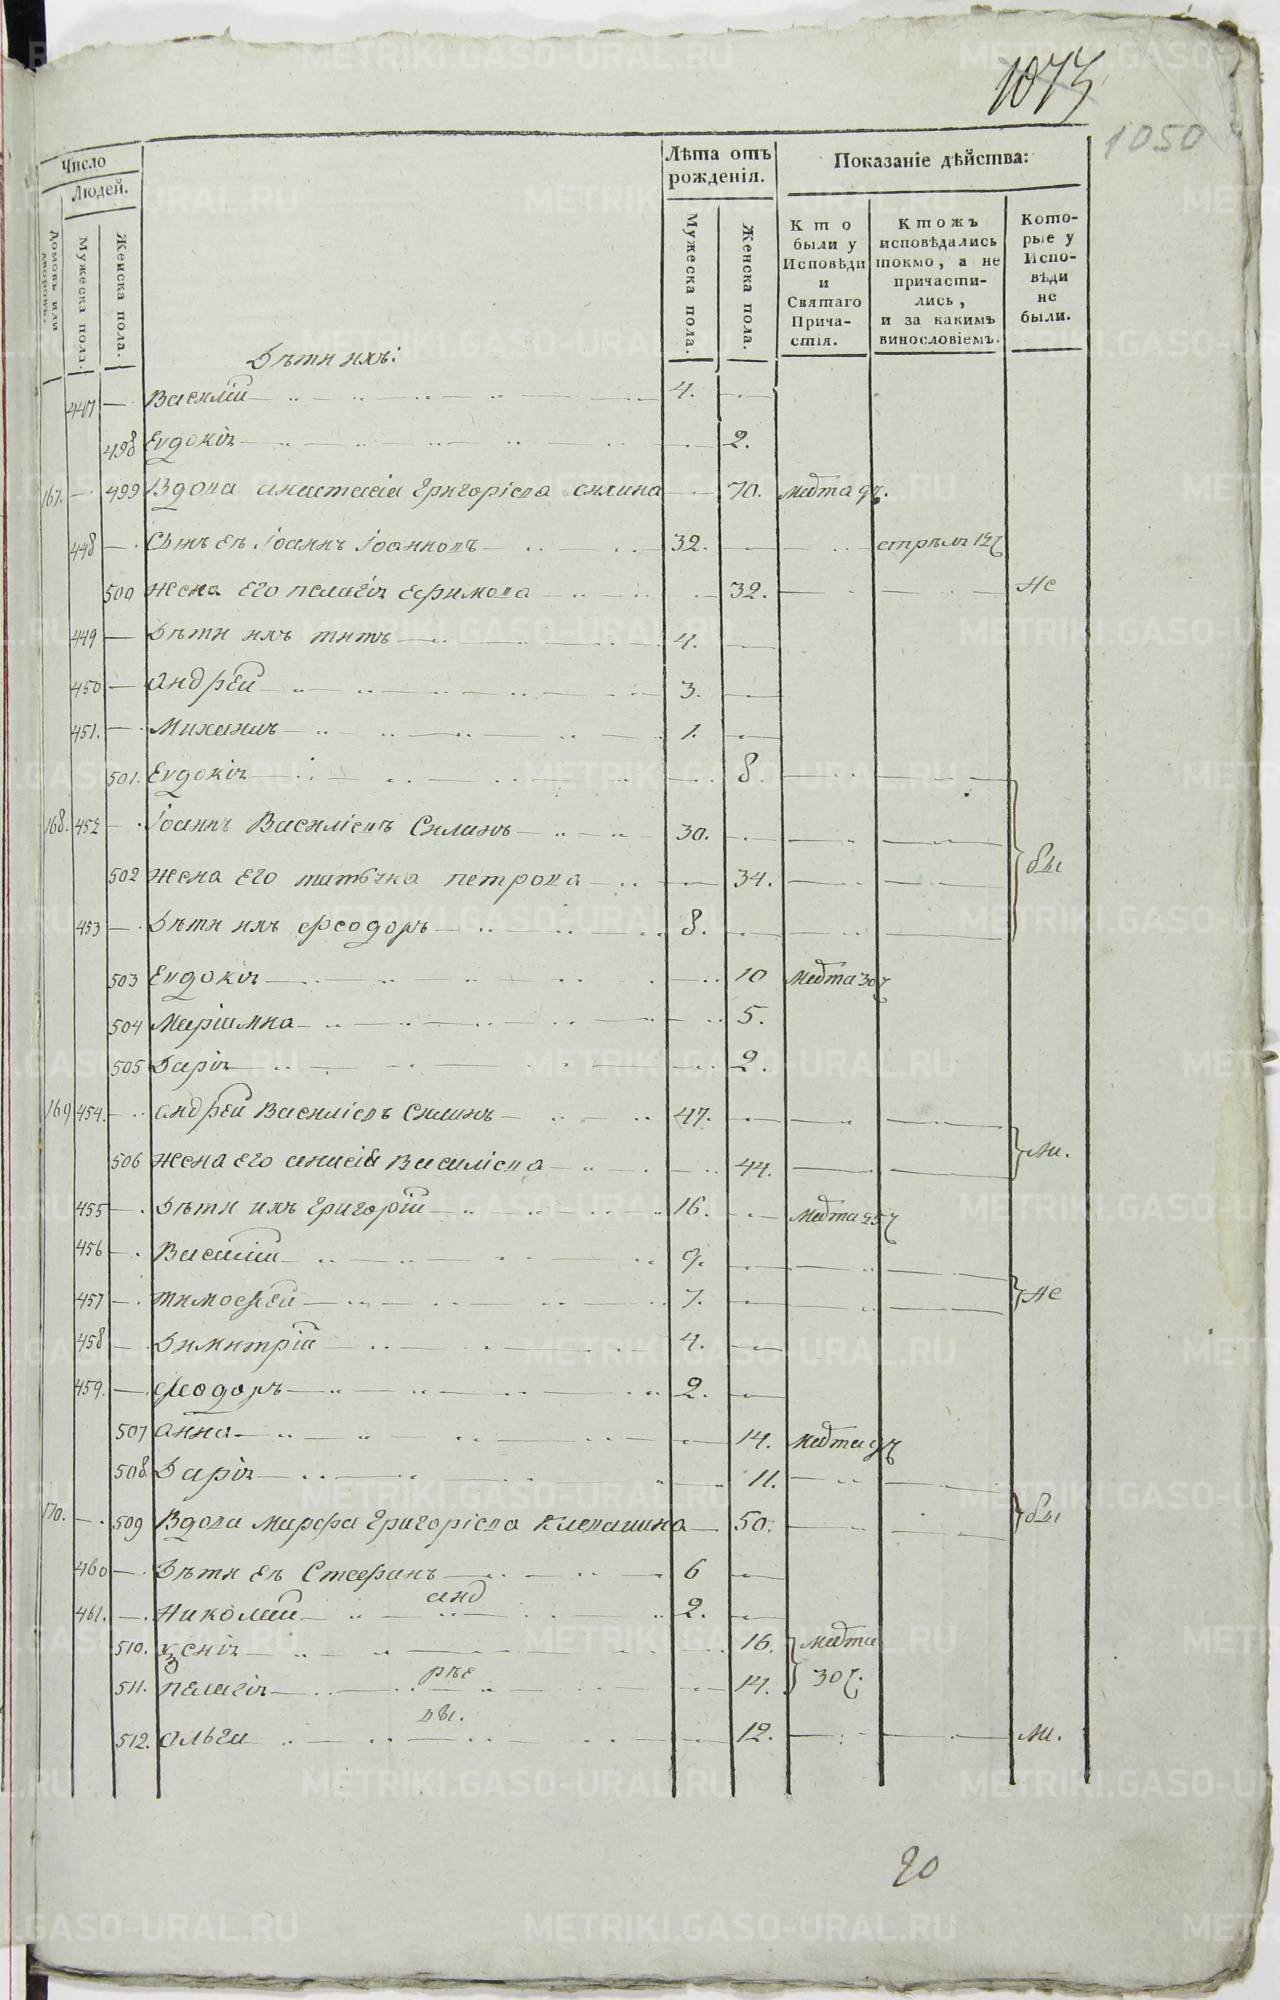 1073
1050
Число
Людей.
Домовъ или дворовъ.
Мужеска пола.
Женска пола.
Лѣта отъ рожденія.
Мужеска пола.
Женска пола.
Показаніе дѣйства:
Кто были у Исповѣди и Святаго Причастія.
Ктожъ исповѣдались токмо, а не причастились, и за какимъ винословіемъ.
Которые у Исповѣди не были.
Дѣти ихъ:
447 — Василій 4.
498 Евдокія 2.
167. — 499 Вдова анастасія григоріева силина 70. марта
448 — Сынъ ея Іоаннъ Іоанновъ 32.
500 жена Его пелагія ефимова 32. не
449 — Дѣти ихъ титъ 4.
450 — андрей 3.
451. — Михаилъ 1.
501. Евдокія 8.
168. 452 — Іоаннъ Василіевъ Силинъ 30. бы
502 жена Его петрова 34.
453 — Дѣти ихъ феодоръ 8.
503 Евдокія 10 марта 30
504 Маріамна 5.
505 Дарія 2.
169 454. — андрей Василіевъ Силинъ 47.
506 жена Его анисія Василіева 44. ли.
455 — Дѣти ихъ григорій 16. марта
456 — Василій 9.
457 — тимофей 7. не
458 — Димитрій 4.
459. — феодоръ 2.
507 анна 14. марта
508 Дарія 11.
170. — 509 Вдова марфа григоріева 50. бы
460 — Дѣти ея Стефанъ 6
анд
461. — Николай 2.
510. ксенія 16. марта
рѣе
511. пелагія 14. 30
вы.
512. ольга 12. ли.
20
METRIKI.GASO-URAL.RU